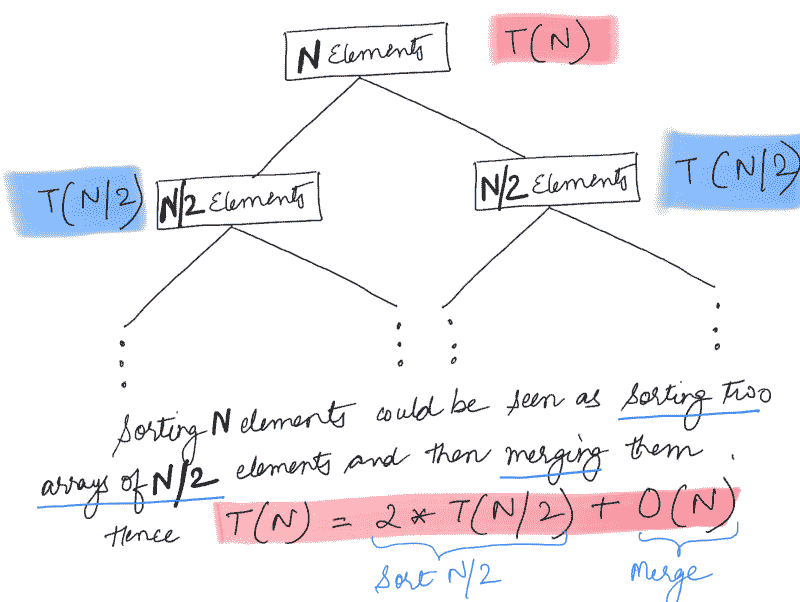 N Elements
T(N)
T(N/2)
N/2 Elements
N/2 Elements
T(N/2)
Sorting N elements could be seen as sorting two
arrays of N/2 elements and then merging them.
Hence T(N) = 2 * T(N/2) + O(N)
Sort N/2
Merge